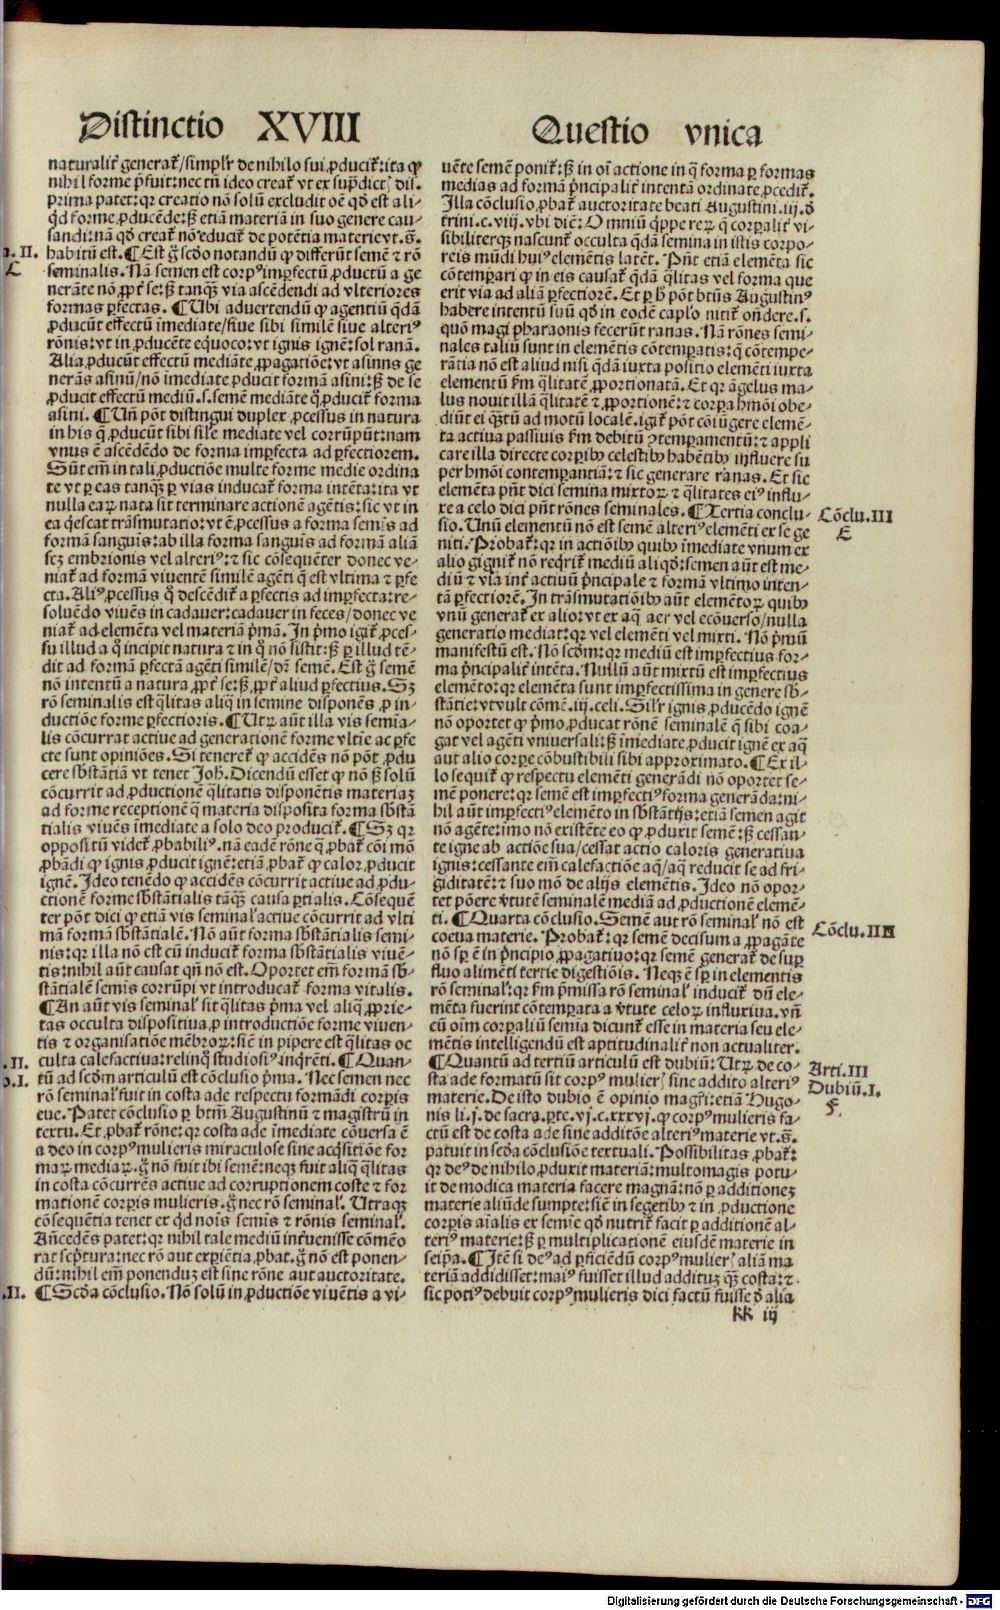 Distinctio XVIII
Questio vnica
naturalit̃ generat̃/simpl'r de nihilo sui ꝓducit̃: ita ꝙ
nihil forme p̃fuit: nec tñ ideo creat̃ vt ex sup̃dict ꝭ dis.
prima patet: qꝛ creatio nõ solũ excludit oẽ qð est ali-
qͥd forme ꝓducẽde: sꝫ etiã materiã in suo genere cau-
sandi: nã qð creat̃ nõ educit̃ de potẽtia materie vt.s̃.
a.II.
C
habitũ est. ¶Est g̃ scðo notandũ ꝙ differũt semẽ ⁊ rõ
seminalis. Nã semen est corpꝰ imꝑfectũ ꝓductũ a ge
nerãte nõ ꝓpt̃ se: sꝫ tanqꝫ via ascẽdendi ad vlteriores
formas ꝑfectas. ¶Ubi aduertendũ ꝙ agentiũ q̃dã
ꝓducũt effectũ ĩmediate/siue sibi similẽ siue alteriꝰ
rõnis: vt in ꝓducẽte equoco: vt ignis ignẽ: sol ranã.
Alia ꝓducũt effectũ mediãte ꝓpagatiõe: vt asinus ge
nerãs asinũ/nõ ĩmediate ꝓducit formã asini: sꝫ de se
ꝓducit effectũ mediũ.s.semẽ mediãte q̃ ꝓducit̃ forma
asini. ¶Uñ põt distingui duplex ꝓcessus in natura
in his q̃ ꝓducũt sibi sil'e mediate vel corrũpũt: nam
vnus ẽ ascẽdẽdo de forma imꝑfecta ad ꝑfectiorem.
Sũt em̃ in tali ꝓductiõe multe forme medie ordina
te vt ꝑ eas tanqꝫ ꝑ vias inducat̃ forma intẽta: ita vt
nulla eaꝝ nata sit terminare actionẽ agẽtis: sic vt in
ea q̃escat trãsmutatio: vt ẽ ꝓcessus a forma semĩs ad
formã sanguĩs: ab illa forma sanguĩs ad formã aliã
scꝫ embrionis vel alteriꝰ: ⁊ sic cõsequẽter donec ve-
niat̃ ad formã viuentẽ similẽ agẽti q̃ est vltima ⁊ ꝑfe
cta. Aliꝰ ꝓcessus q̃ descẽdit̃ a ꝑfectis ad imꝑfecta: re-
soluẽdo viuẽs in cadauer: cadauer in feces/donec ve
niat̃ ad elemẽta vel materiã p̃mã. In p̃mo igit̃ ꝓces-
su illud a q̃ incipit natura ⁊ in q̃ nõ sistit: sꝫ ꝑ illud tẽ-
dit ad formã ꝑfectã agẽti similẽ/dr̃ semẽ. Est g̃ semẽ
nõ intentũ a natura ꝓpt̃ se: sꝫ ꝓpt̃ aliud ꝑfectius. Sꝫ
rõ seminalis est q̃litas aliq̃ in semine disponẽs ꝓ in-
ductiõe forme ꝑfectioris. ¶Utꝝ aũt illa vis semĩa-
lis cõcurrat actiue ad generationẽ forme vltĩe ac ꝑfe
cte sunt opiniões. Si teneret̃ ꝙ accidẽs nõ põt ꝓdu
cere sb̃stãtiã vt tenet Joh. Dicendũ esset ꝙ nõ sꝫ solũ
cõcurrit ad ꝓductionẽ q̃litatis disponẽtis materiaꝫ
ad forme receptionẽ q̃ materia disposita forma sb̃stã
tialis viuẽs ĩmediate a solo deo producit̃. ¶Sꝫ qꝛ
oppositũ videt̃ ꝓbabiliꝰ. nã eadẽ rõne q̃ ꝓbat̃ cõi mõ
ꝓbãdi ꝙ ignis ꝓducit ignẽ: etiã ꝓbat̃ ꝙ calor ꝓducit
ignẽ. Ideo tenẽdo ꝙ accidẽs cõcurrit actiue ad ꝓdu-
ctionẽ forme sb̃stãtialis tãqꝫ causa ꝑtialis. Cõsequẽ
ter põt dici ꝙ etiã vis seminal' actiue cõcurrit ad vlti
mã formã sb̃stãtialẽ. Nõ aũt forma sb̃stãtialis semi-
nis: qꝛ illa nõ est cũ inducit̃ forma sb̃stãtialis viuẽ-
tis: nihil aũt causat qñ nõ est. Oportet em̃ formã sb̃-
stãtialẽ semĩs corrũpi vt introducat̃ forma vitalis.
¶An aũt vis seminal' sit q̃litas p̃ma vel aliq̃ ꝓprie-
tas occulta dispositiua ꝓ introductiõe forme viuen-
tis ⁊ organisatiõe mẽbroꝝ: siẽ in pipere est q̃litas oc
.II.
culta calefactiua: relinq̃ studiosiꝰ inq̃rẽti. ¶Quan-
o.I.
tũ ad scðm articulũ est cõclusio p̃ma. Nec semen nec
rõ seminal' fuit in costa ade respectu formãdi corꝑis
eue. Patet cõclusio ꝑ btm̃ Augustinũ ⁊ magistrũ in
textu. Et ꝓbat̃ rõne: qꝛ costa ade ĩmediate cõuersa ẽ
a deo in corpꝰ mulieris miraculose sine acq̃sitiõe for
maꝝ mediaꝝ. g̃ nõ fuit ibi semẽ: neqꝫ fuit aliq̃ q̃litas
in costa cõcurrẽs actiue ad corruptionem coste ⁊ for
mationẽ corꝑis mulieris. g̃ nec rõ seminal'. Utraqꝫ
cõsequẽtia tenet ex qͥd nois semĩs ⁊ rõnis seminal'.
Añcedẽs patet: qꝛ nihil tale mediũ int̃uenisse cõmẽo
rat scp̃tura: nec rõ aut exꝑiẽtia ꝓbat. g̃ nõ est ponen-
dũ: nihil em̃ ponenduꝫ est sine rõne aut auctoritate.
.II.
¶Scða cõclusio. Nõ solũ in ꝓductiõe viuẽtis a vi-
uẽte semẽ ponit̃: sꝫ in oĩ actione in q̃ forma ꝑ formas
medias ad formã p̃ncipalit̃ intentã ordinate ꝓcedit̃.
Illa cõclusio ꝓbat̃ auctoritate beati Augustini.iij.ð
trini.c.viij.vbi diẽ: Omniũ q̃ppe reꝝ q̃ corꝑalit̃ vi-
sibiliterqꝫ nascunt̃ occulta q̃dã semina in istis corpo-
reis mũdi huiꝰ elemẽtis latẽt. Pñt etiã elemẽta sic
cõtemꝑari ꝙ in eis causat̃ q̃dã q̃litas vel forma que
erit via ad aliã ꝑfectiorẽ. Et ꝑ h̃ põt btũs Augustinꝰ
habere intentũ suũ qð in eodẽ capl'o nitit̃ oñdere.s.
quõ magi pharaonis fecerũt ranas. Nã rões semi-
nales taliũ sunt in elemẽtis cõtemꝑatis: q̃ cõtempe-
rãtia nõ est aliud nisi q̃dã iuxta positio elemẽti iuxta
elementũ fm q̃litatẽ ꝓportionatã. Et qꝛ ãgelus ma-
lus nouit illã q̃litatẽ ⁊ ꝓportionẽ: ⁊ corꝑa hmõi obe-
diũt ei qꝫtũ ad motũ localẽ. igit̃ põt cõiũgere elemẽ-
ta actiua passiuis fm debitũ ꝯtemꝑamentũ: ⁊ appli
care illa directe corꝑibꝰ celestibꝰ habẽtibꝰ influere su
per hmõi contemꝑantiã: ⁊ sic generare ranas. Et sic
elemẽta pñt dici semina mixtoꝝ ⁊ q̃litates eiꝰ influ-
xe a celo dici pñt rões seminales. ¶Tertia conclu-
Cõclu.III
sio. Unũ elementũ nõ est semẽ alteriꝰ elemẽti ex se ge
E
niti. Probat̃: qꝛ in actiõibꝰ quibꝰ ĩmediate vnum ex
alio gignit̃ nõ req̃rit̃ mediũ aliqð: semen aũt est me-
diũ ⁊ via int̃ actiuũ p̃ncipale ⁊ formã vltimo inten-
tã ꝑfectiorẽ. In trãsmutatiõibꝰ aũt elemẽtoꝝ quibꝰ
vnũ generat̃ ex alio: vt ex aq̃ aer vel ecõuerso/nulla
generatio mediat: qꝛ vel elemẽti vel mixti. Nõ p̃mũ
manifestũ est. Nõ scðm: qꝛ mediũ est imꝑfectius for-
ma p̃ncipalit̃ intẽta. Nullũ aũt mixtũ est imꝑfectius
elemẽto: qꝛ elemẽta sunt imꝑfectissima in genere sb̃-
stãtie: vt vult cõmẽ.iij.celi. Sil'r ignis ꝓducẽdo ignẽ
nõ oportet ꝙ p̃mo ꝓducat rõnẽ seminalẽ q̃ sibi coa-
gat vel agẽti vniuersali: sꝫ ĩmediate ꝓducit ignẽ ex aq̃
aut alio corꝑe cõbustibili sibi approximato. ¶Ex il-
lo sequit̃ ꝙ respectu elemẽti generãdi nõ oportet se-
mẽ ponere: qꝛ semẽ est imꝑfectiꝰ forma generãda: ni-
hil aũt imꝑfectiꝰ elemẽto in sb̃stãtijs: etiã semen agit
nõ agẽte: imo nõ existẽte eo ꝙ ꝓduxit semẽ: sꝫ cessan-
te igne ab actiõe sua/cessat actio caloris generatiua
ignis: cessante em̃ calefactiõe aq̃/aq̃ reducit se ad fri-
giditatẽ: ⁊ suo mõ de alijs elemẽtis. Ideo nõ opor-
tet põere v̾tutẽ seminalẽ mediã ad ꝓductionẽ elemẽ-
ti. ¶Quarta cõclusio. Semẽ aut rõ seminal' nõ est
Cõclu.IIII
coeua materie. Probat̃: qꝛ semẽ decisum a ꝓpagãte
nõ sp̃ ẽ in p̃ncipio ꝓpagatiuo: qꝛ semẽ generat̃ de suꝑ
fluo alimẽti tertie digestiõis. Neqꝫ ẽ sp̃ in elementis
rõ seminal': qꝛ fm p̃missa rõ seminal' inducit̃ dũ ele-
mẽta fuerint cõtemꝑata a v̾tute celoꝝ influxiua. vñ
cũ oĩm corꝑaliũ semĩa dicunt̃ esse in materia seu ele-
mẽtis intelligendũ est aptitudinalit̃ non actualiter.
¶Quantũ ad tertiũ articulũ est dubiũ: Utꝝ de co-
Arti.III
sta ade formatũ sit corpꝰ mulierꝭ sine addito alteriꝰ
Dubiũ.I.
materie. De isto dubio ẽ opinio magr̃i: etiã Hugo-
F
nis li.j.de sacra.ꝑte.vj.c.xxxvj.ꝙ corpꝰ mulieris fa-
ctũ est de costa ade sine additõe alteriꝰ materie vt.s̃.
patuit in scða cõclusiõe textuali. Possibilitas ꝓbat̃:
qꝛ deꝰ de nihilo ꝓduxit materiã: multomagis potu-
it de modica materia facere magnã: nõ ꝑ additioneꝫ
materie aliũde sumpte: siẽ in segetibꝰ ⁊ in ꝓductione
corꝑis aĩalis ex semĩe qð nutrit̃ facit ꝑ additionẽ al-
teriꝰ materie: sꝫ ꝑ multiplicationẽ eiusdẽ materie in
seip̃a. ¶Itẽ si deꝰ ad ꝑficiẽdũ corpꝰ mulierꝭ aliã ma
teriã addidisset: maiꝰ fuisset illud addituꝫ qꝫ costa: ⁊
sic potiꝰ debuit corpꝰ mulieris dici factũ fuisse ð alia
kk iij
Digitalisierung gefördert durch die Deutsche Forschungsgemeinschaft - DFG